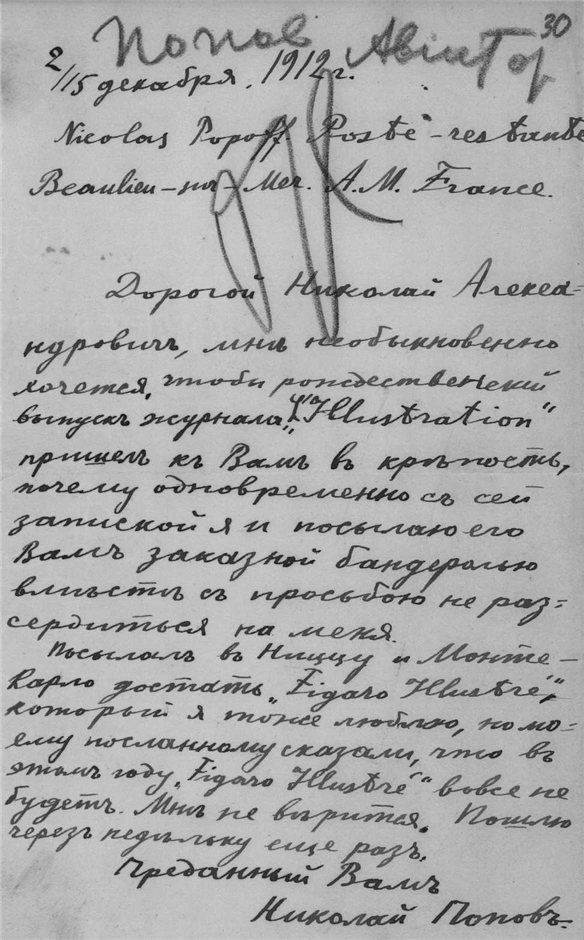 30
Попов Авіатор
2/15 декабря. 1912 г.
Nicolas Popoff. Poste-restante
Beaulieu-sur-Mer. A.M. France.
Дорогой Николай Алекса=
ндровичъ, мнѣ необыкновенно
хочется, чтобы рождественскій
выпускъ журнала „L'Illustration"
пришелъ къ Вамъ въ крѣпость,
почему одновременно съ сей
запиской я и посылаю его
Вамъ заказной бандеролью
вмѣстѣ съ просьбою не раз=
сердиться на меня.
Посылалъ въ Ниццу и Монте-
Карло достать „Figaro Illustré",
который я тоже люблю, но мо=
ему посланному сказали, что въ
этомъ году „Figaro Illustré" вовсе не
будетъ. Мнѣ не вѣрится. Пошлю
черезъ недѣльку еще разъ.
Преданный Вамъ
Николай Поповъ.